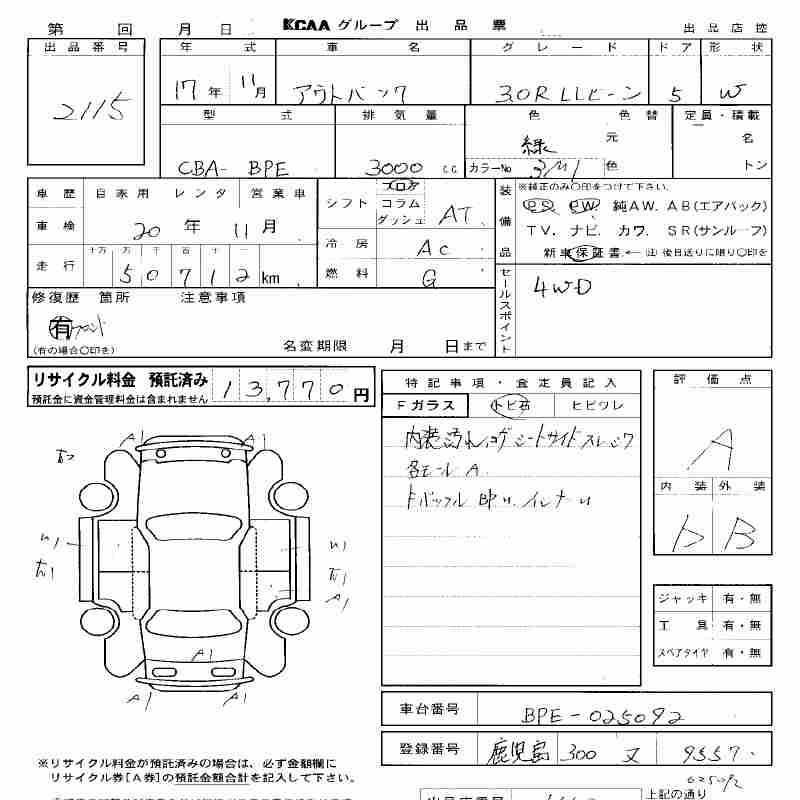 第 回 月 日 KCAA グループ 出品票 出品店控
出品番号 年式 車名 グレード ドア 形状
2115 17年 11月 アウトバック 3.0R LLビーン 5 W
型式 排気量 色 色替 定員・積載
緑 元 名
CBA- BPE 3000 c.c. カラーNo 31M 色 トン
車歴 自家用 レンタ 営業車 シフト フロア コラム ダッシュ AT
装備品 ※純正のみ○印をつけて下さい。
PS PW 純AW. AB(エアバック)
車検 20年 11月
TV. ナビ. カワ. SR(サンルーフ)
冷房 AC 新車保証書 ←注 後日送りに限り○印を
走行 十万 万 千 百 十 一
50712 km 燃料 G
セールスポイント 4WD
修復歴 箇所 注意事項
有 フロント
(有の場合○印を) 名変期限 月 日まで
リサイクル料金 預託済み 13,770円
預託金に資金管理料金は含まれません
特記事項・査定員記入 評価点
Fガラス トビ石 ヒビワレ
A
内装汚れ、コゲ シートサイドスレ シワ
各モール A
内装 外装
b B
A1 A1
A1
A1
A1 A1
ジャッキ 有・無
工具 有・無
スペアタイヤ 有・無
車台番号 BPE-025092
登録番号 鹿児島 300 又 9557
025092
※リサイクル料金が預託済みの場合は、必ず金額欄に
リサイクル券[A券]の預託金額合計を記入して下さい。
上記の通り